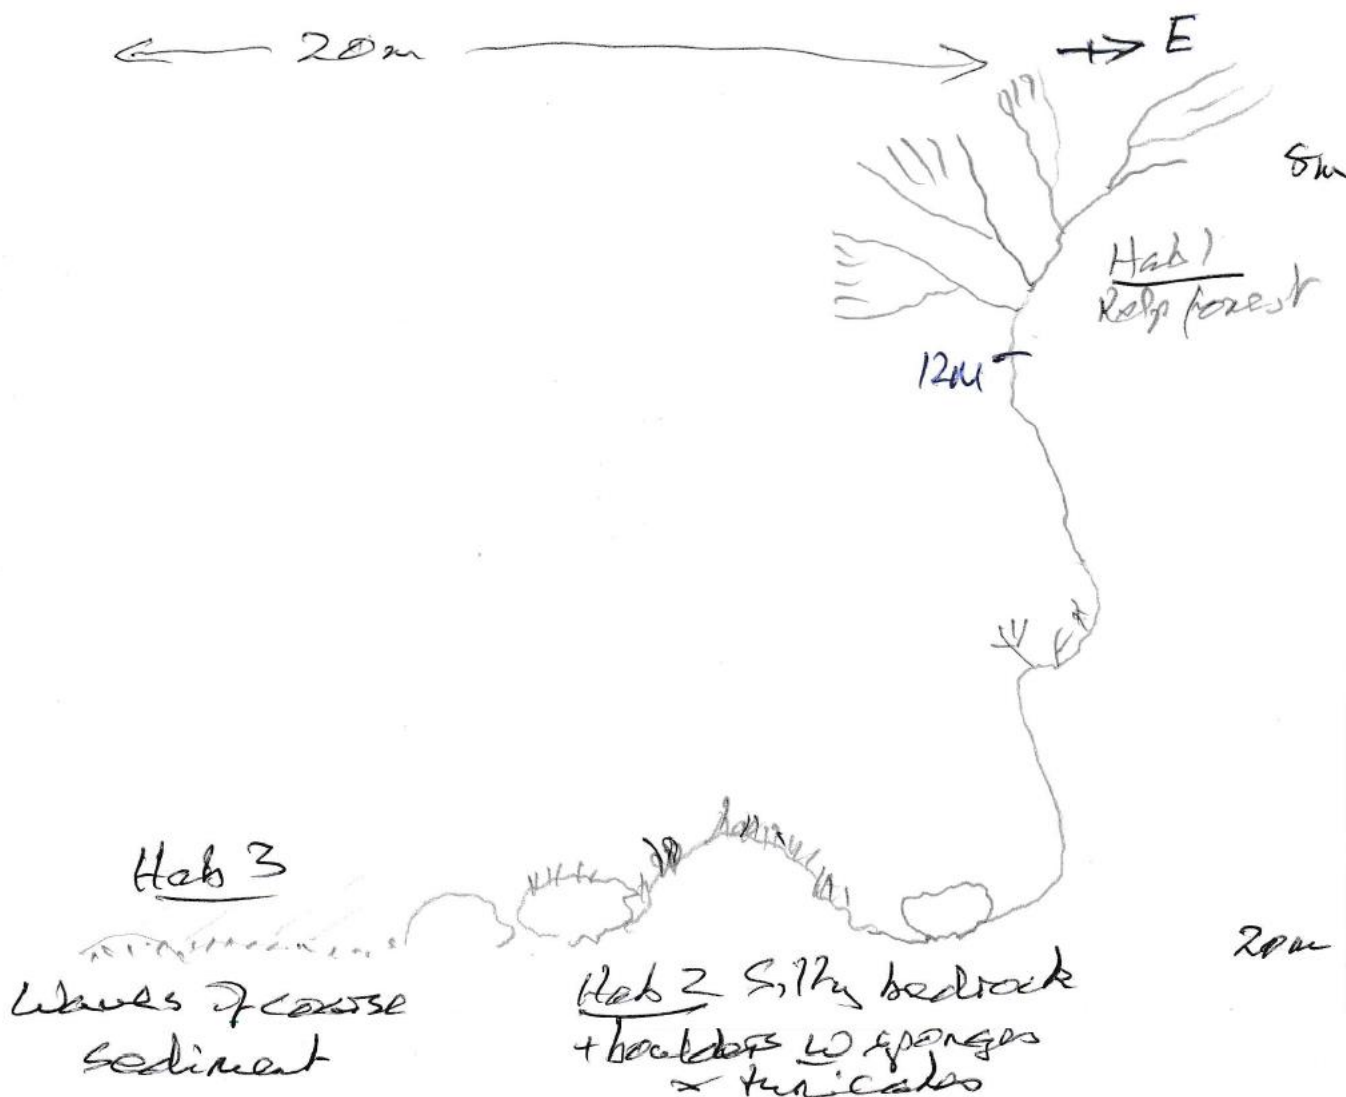 20m
E
8m
Hab 1
Kelp forest
12m
Hab 3
Waves of coarse
sediment
Hab 2 Silty bedrock
+ boulders w sponges
+ tunicates
20m